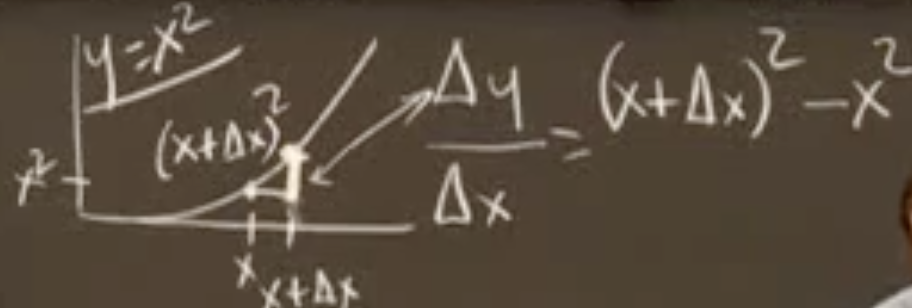 y=x²
(x+Δx)²
x²
x
x+Δx
Δy/Δx = (x+Δx)² - x²